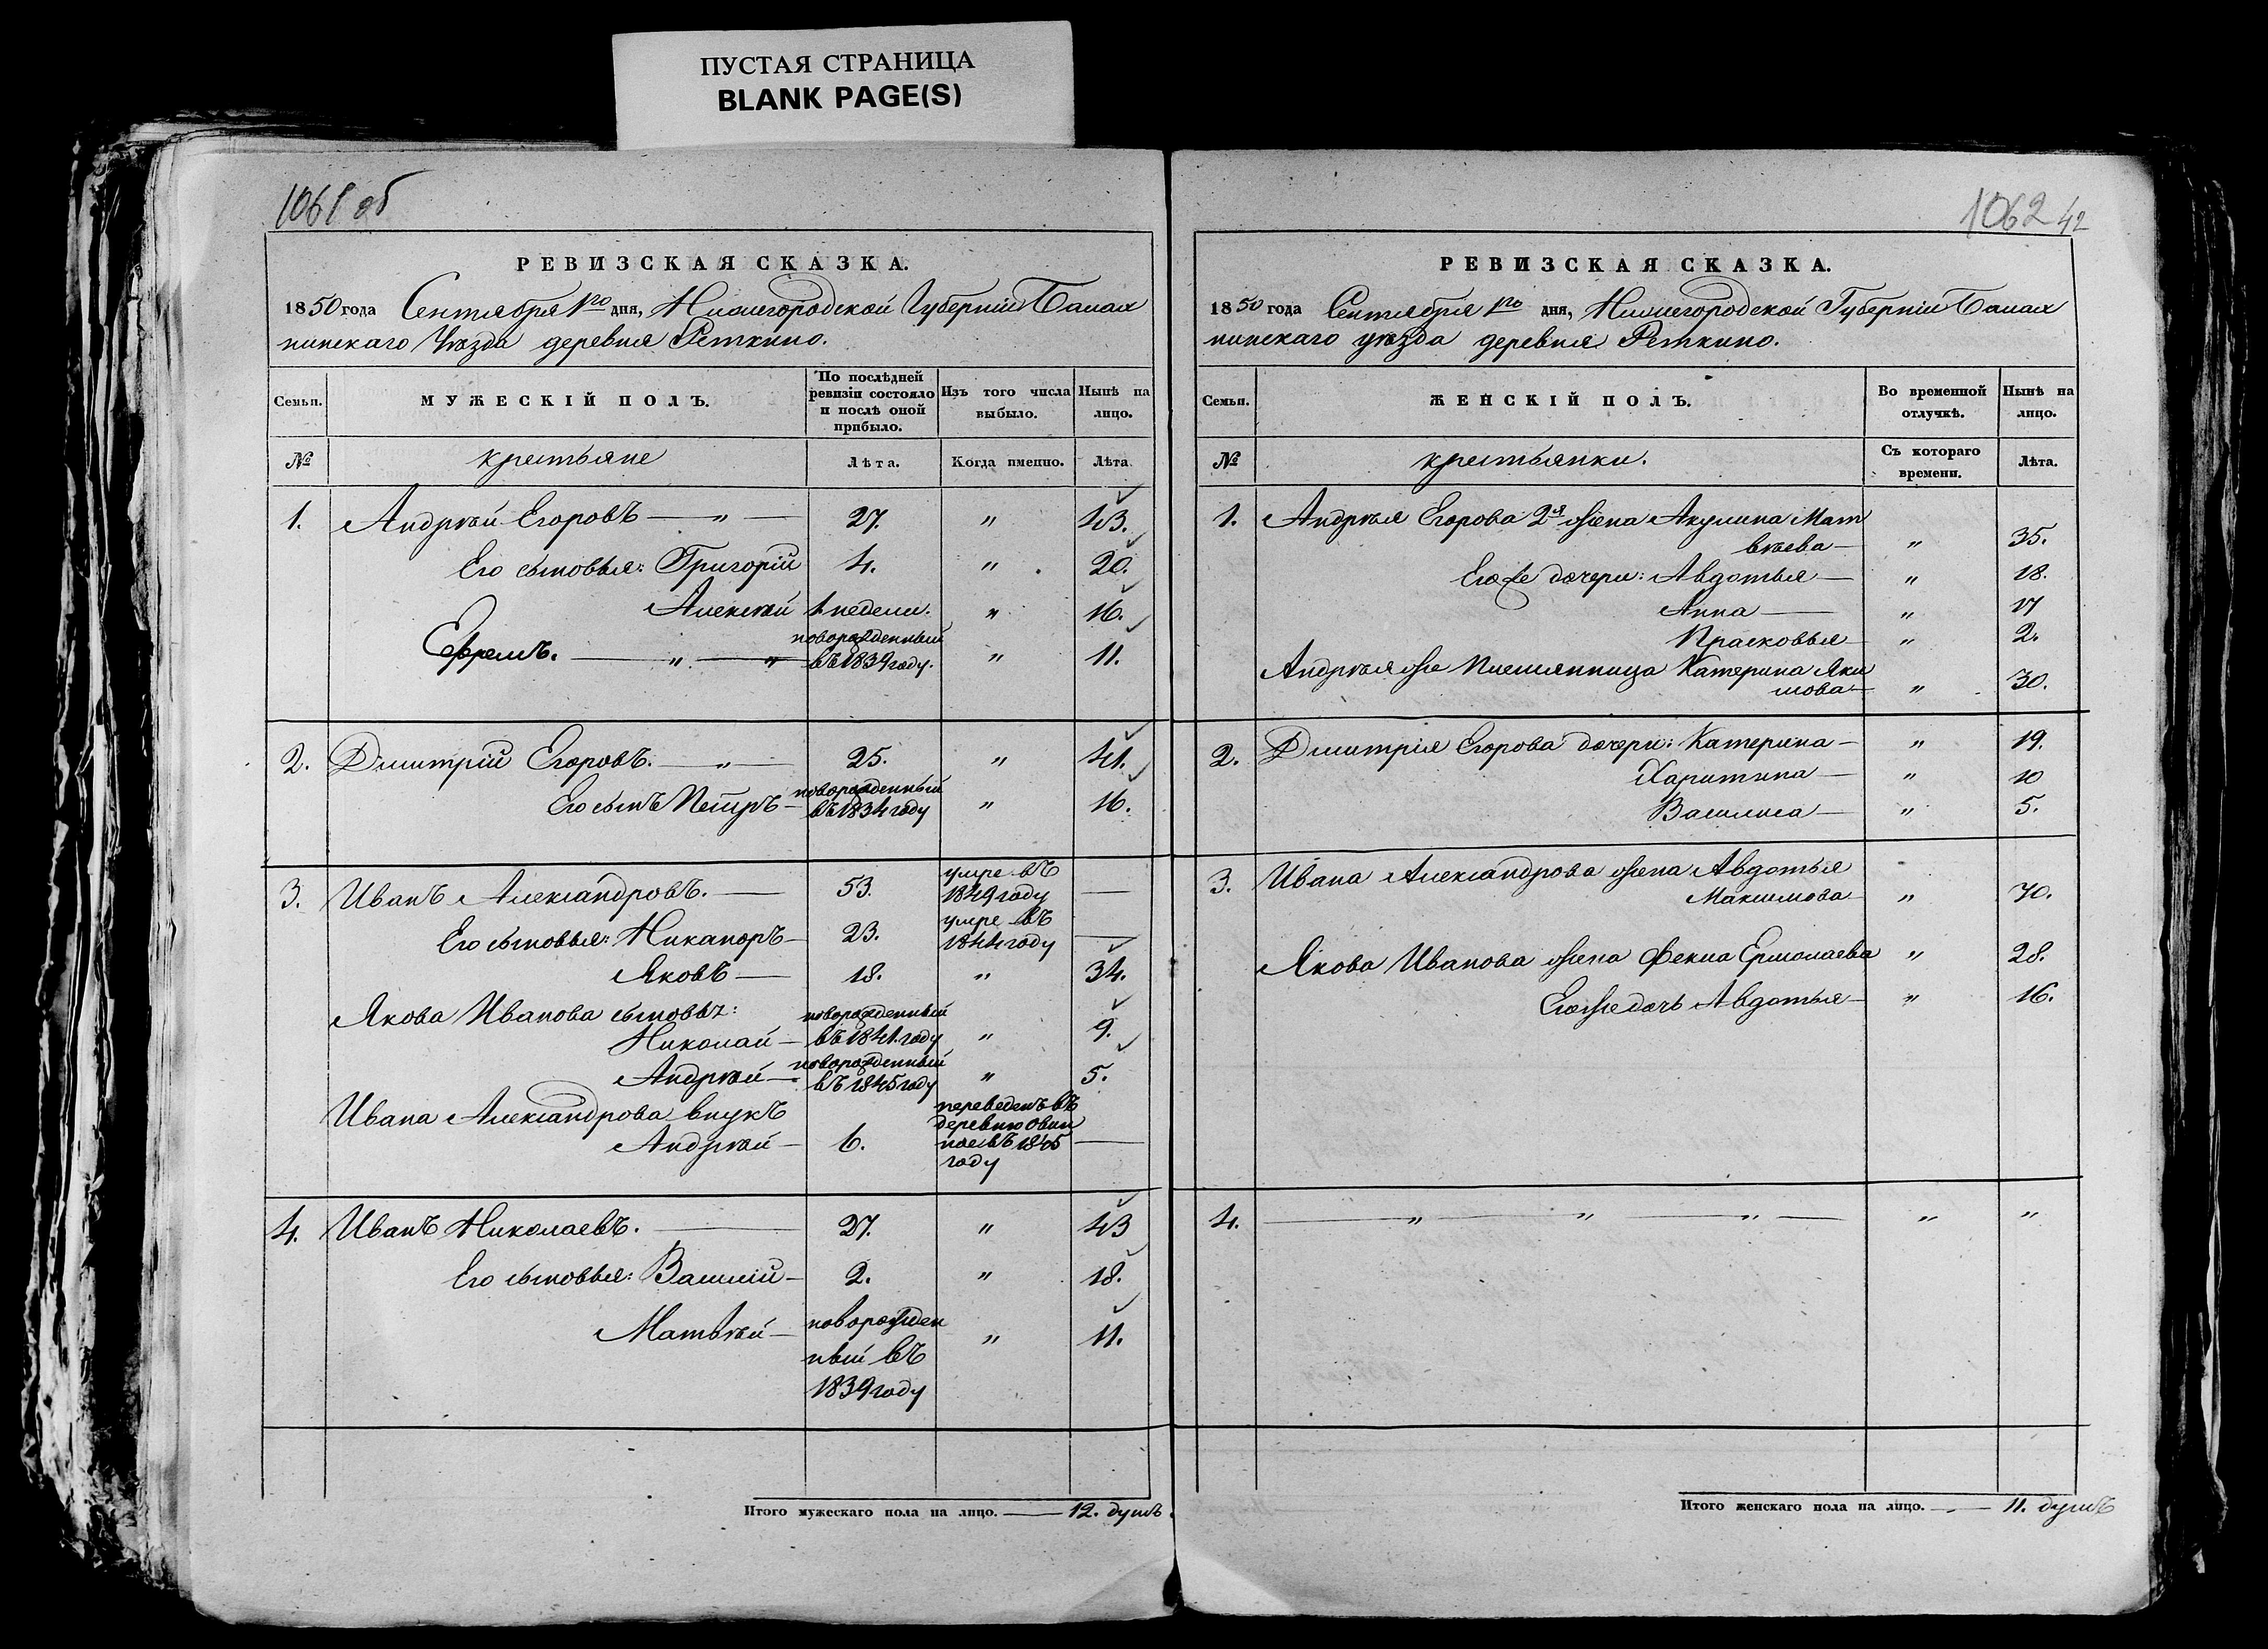 ПУСТАЯ СТРАНИЦА
BLANK PAGE(S)
1061 об
РЕВИЗСКАЯ СКАЗКА.
1850 года Сентября 1го дня, Нижегородской Губерніи Балах
нинскаго Уѣзда деревня Реткино.
Семьи. МУЖЕСКІЙ ПОЛЪ. По послѣдней ревизіи состояло и послѣ оной прибыло. Изъ того числа выбыло. Нынѣ на лицо.
№ крестьяне Лѣта. Когда именно. Лѣта
1. Андрѣй Егоровъ — " — 27. " 43.
Его сыновья: Григорій 4. " 20.
Алексѣй 1 недели. " 16.
Ефремъ. — " — " новорожденный
въ 1839 году. " 11.
2. Дмитрій Егоровъ. — " — 25. " 41.
Его сынъ Петръ — новорожденный
въ 1834 году " 16.
3. Иванъ Александровъ. — 53. умре въ
1849 году —
Его сыновья: Никаноръ — 23. умре въ
1844 году —
Яковъ — 18. " 34.
Якова Иванова сыновья:
Николай — новорожденный
въ 1841 году " 9.
Андрѣй — новорожденный
въ 1845 году " 5.
Ивана Александрова внукъ
Андрѣй — 6. переведенъ въ
деревню
въ 1845
году —
4. Иванъ Николаевъ. — 27. " 43
Его сыновья: Василій — 2. " 18.
Матвѣй — новорожден
ный въ
1839 году " 11.
Итого мужескаго пола на лицо. — 12. душъ.
1062 42
РЕВИЗСКАЯ СКАЗКА.
1850 года Сентября 1го дня, Нижегородской Губерніи Балах
нинскаго уѣзда деревня Реткино.
Семьи. ЖЕНСКІЙ ПОЛЪ. Во временной отлучкѣ. Нынѣ на лицо.
№ крестьянки. Съ котораго времени. Лѣта.
1. Андрѣя Егорова 2я жена Акулина Мат
вѣева — " 35.
Его же дочери: Авдотья — " 18.
Анна — " 17
Прасковья — " 2.
Андрѣя же племянница Катерина Яки
мова — " 30.
2. Дмитрія Егорова дочери: Катерина — " 19.
Харитина — " 10
Василиса — " 5.
3. Ивана Александрова жена Авдотья
Максимова — " 70.
Якова Иванова жена Фекла Ермолаева " 28.
Его же дочь Авдотья — " 16.
4. — " " — " — " "
Итого женскаго пола на лицо. — 11. душъ